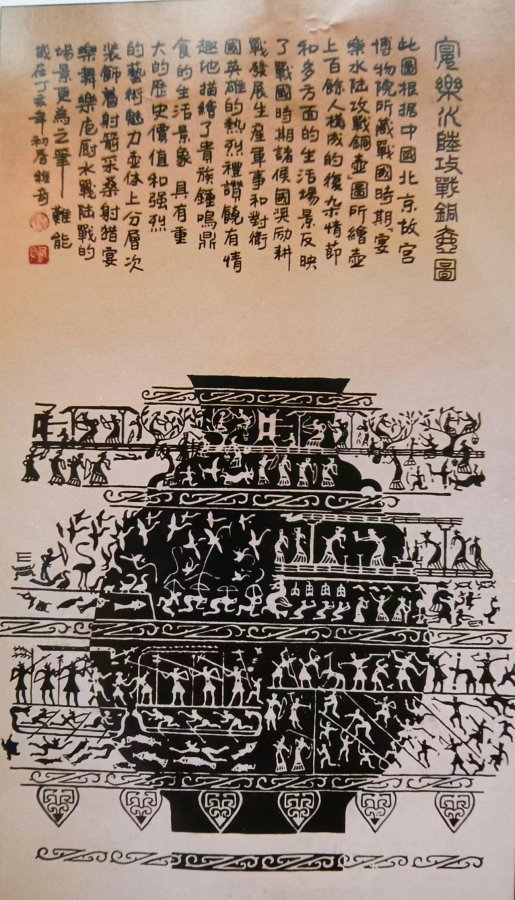 宴樂水陸攻戰銅壺圖
此圖根据中國北京故宮
博物院所藏戰國時期、宴
樂水陆攻戰銅壺圖所繪壺
上百餘人構成的復杂情節
和多方面的生活場景反映
了戰國時期諸侯國奖励耕
戰發展生産軍事和對衛
國英雄的熱烈禮讃饒有情
趣地描繪了貴族鍾鳴鼎
食的生活景象具有重
大的歷史價值和强烈
的藝術魅力壺体上分層次
装飾着射箭采桑射猎宴
樂舞樂庖厨水戰陆戰的
場景更為之筆——難能
歲在丁亥年初